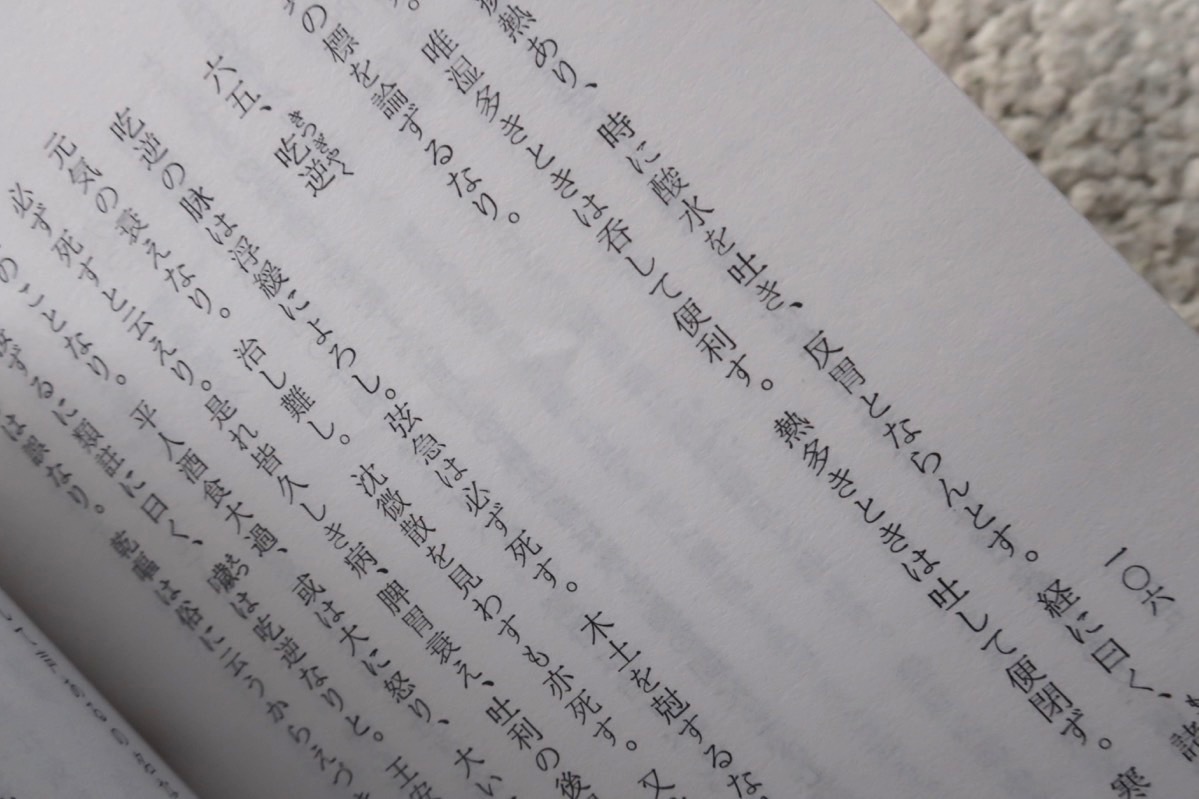 一〇六
熱あり、時に酸水を吐き、反胃とならんとす。経に曰く、諸
唯湿多きときは呑して便利す。熱多きときは吐して便閉ず。寒
の標を論ずるなり。
六五、吃逆
きつぎゃく
吃逆の脉は浮緩によろし。弦急は必ず死す。木土を尅するな
元気の衰えなり。治し難し。沈微散を見わすも亦死す。又
必ず死すと云えり。是れ皆久しき病、脾胃衰え、吐利の後
のことなり。平人酒食大過、或は大に怒り、大い
ずるに類註に曰く、は吃逆なりと。王安
は誤なり。乾嘔は俗に云うからえづき